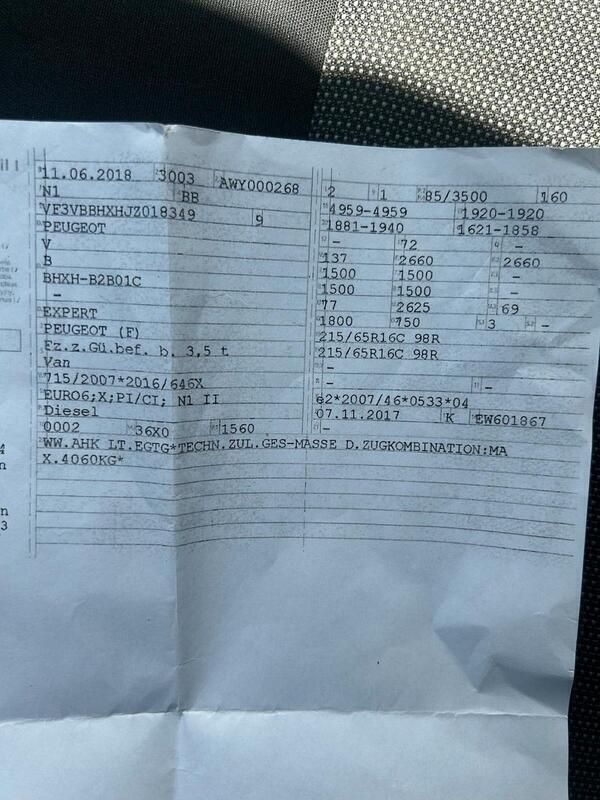 11.06.2018 3003 AWY000268
N1 BB
VF3VBBHXHJZ018349 9
PEUGEOT
V
B
BHXH-B2B01C
-
EXPERT
PEUGEOT (F)
Fz.z.Gü.bef. b. 3,5 t
Van
715/2007*2016/646X
EURO6;X;PI/CI; N1 II
Diesel
0002 36X0 1560
2 1 85/3500 160
4959-4959 1920-1920
1881-1940 1621-1858
- 72 -
137 2660 2660
1500 1500
1500 1500
77 2625 69
1800 750 3 -
215/65R16C 98R
215/65R16C 98R
-
- -
e2*2007/46*0533*04
07.11.2017 K EW601867
-
WW.AHK LT.EGTG*TECHN.ZUL.GES-MASSE D.ZUGKOMBINATION:MA
X.4060KG*